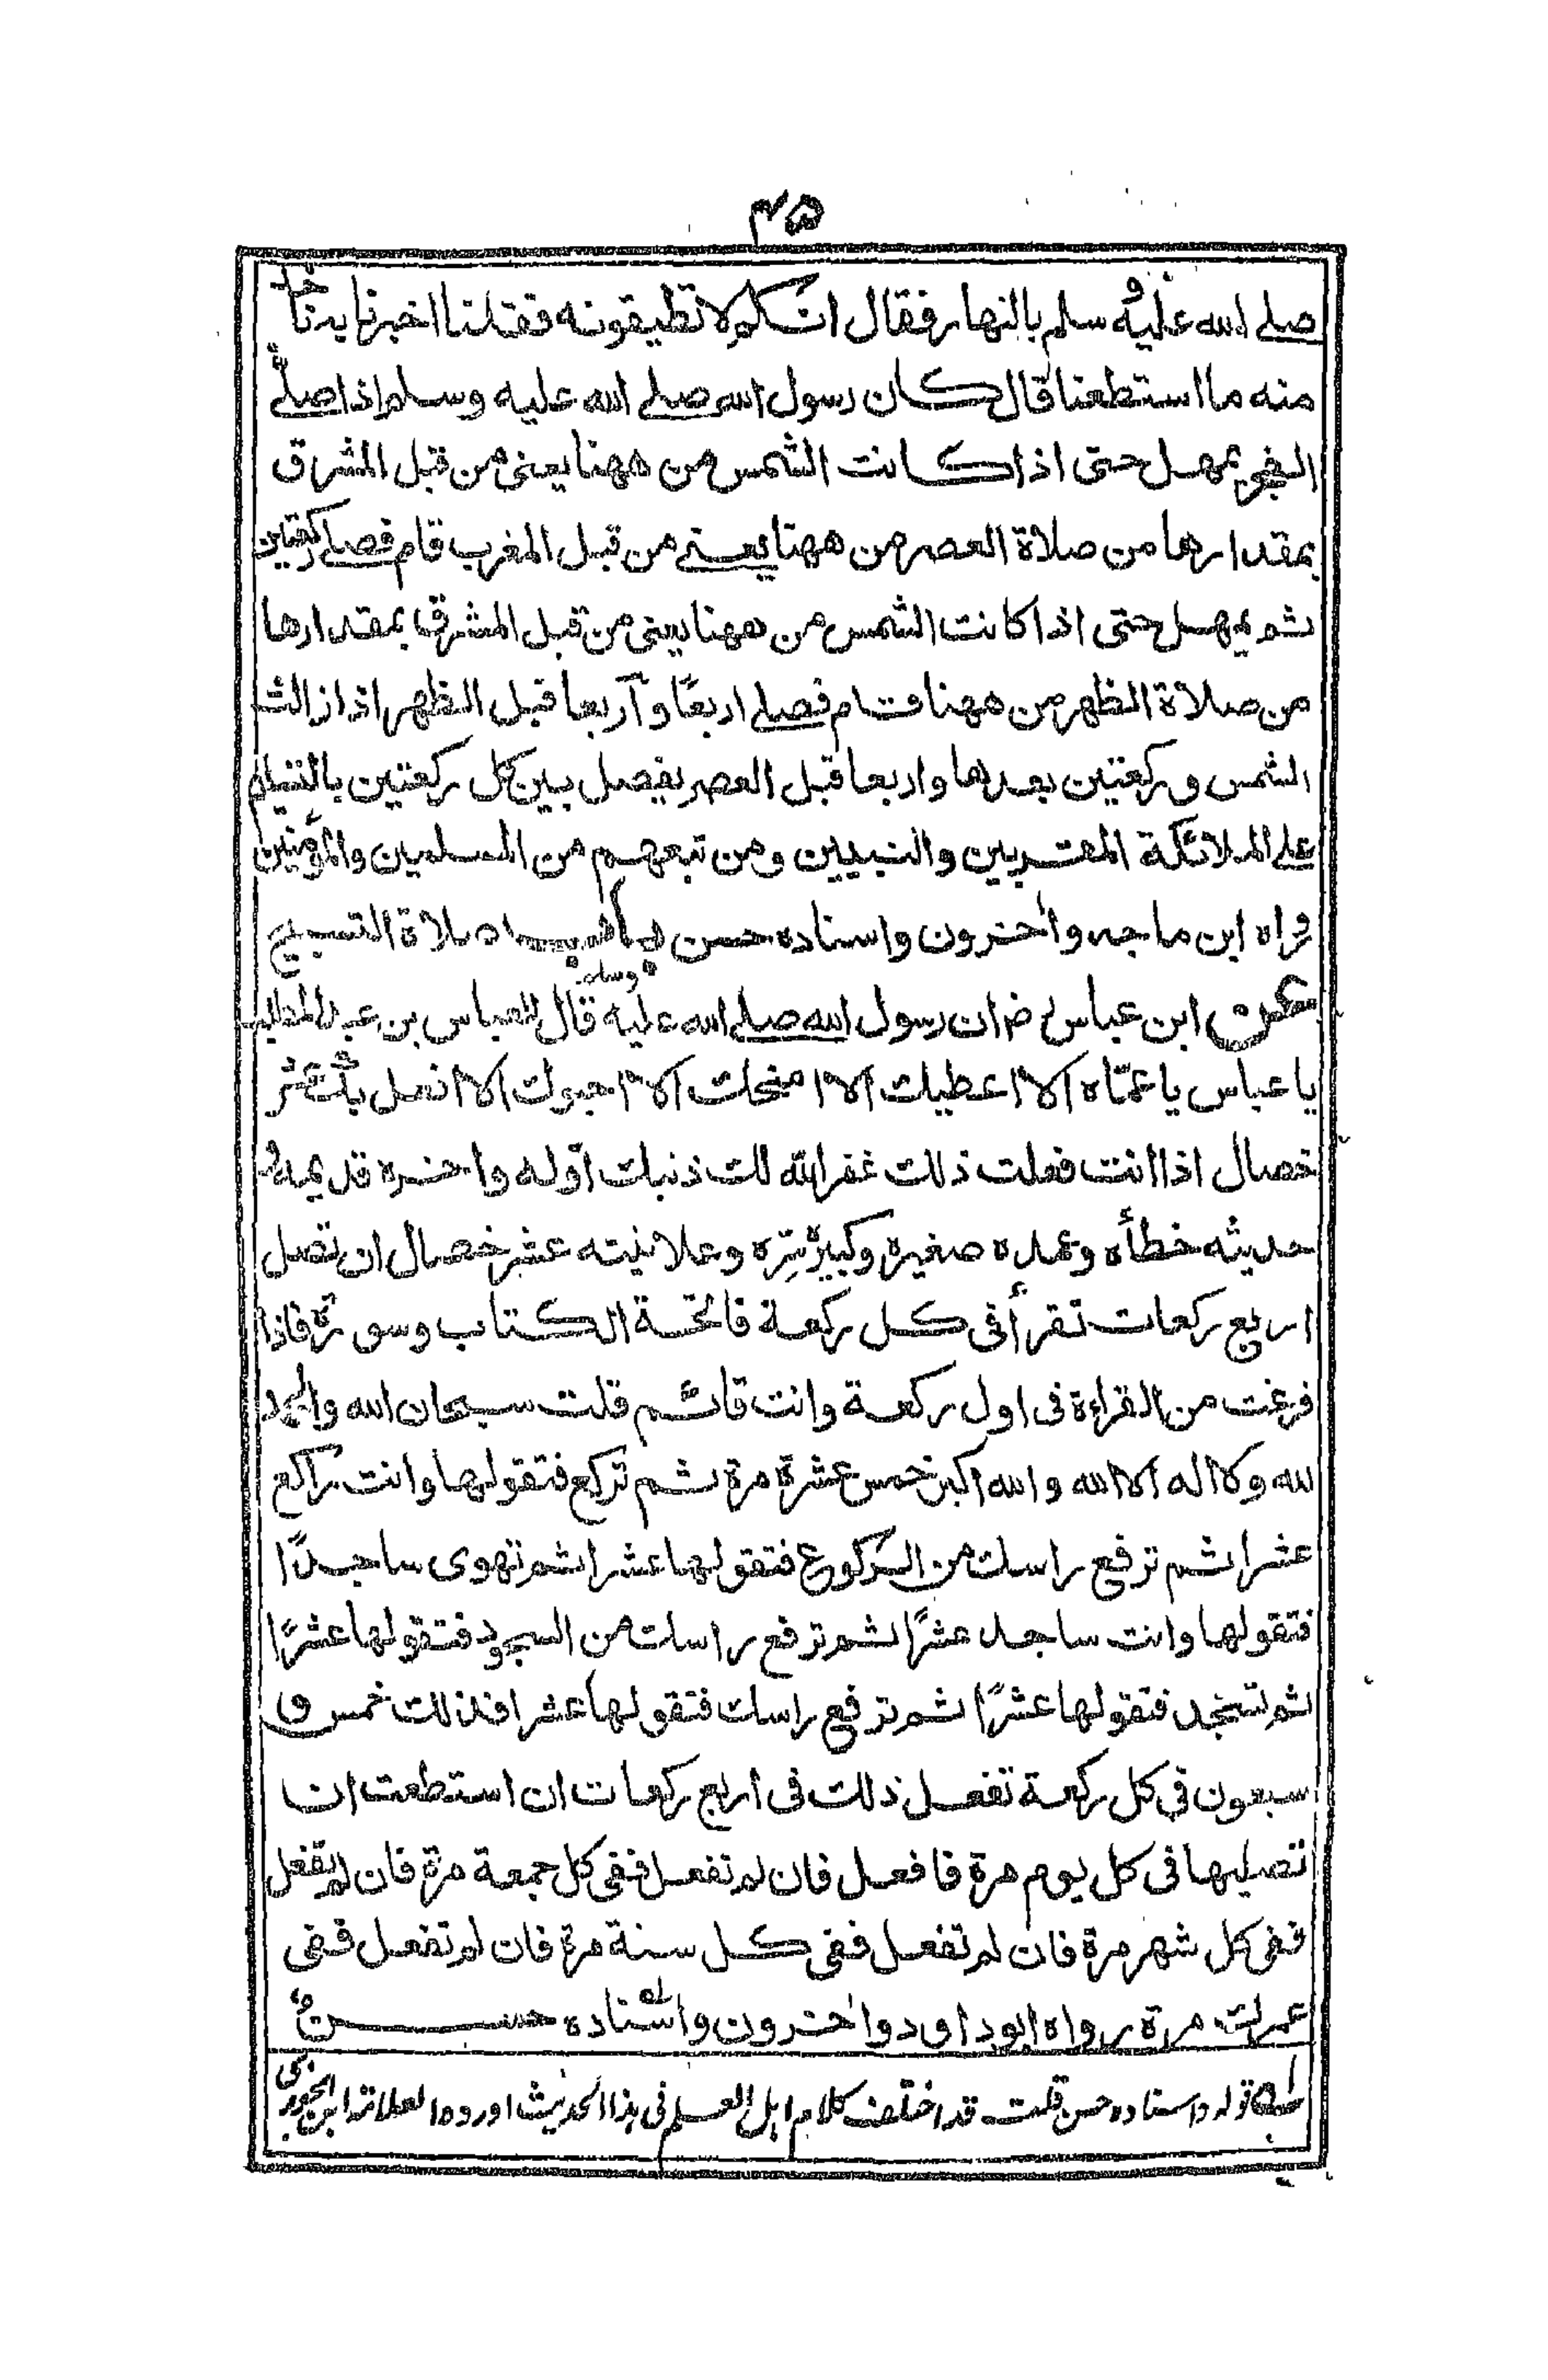 ٣٥
صلى الله عليه وسلم بالنهار فقال انكم لا تطيقونه فقلنا اخبرنا به ناخذ
منه ما استطعنا قال كان رسول الله صلى الله عليه وسلم اذا صلى
الفجر يمهل حتى اذا كانت الشمس من ههنا يعنى من قبل المشرق
بمقدارها من صلاة العصر من ههنا يعنى من قبل المغرب قام فصلى ركعتين
ثم يمهل حتى اذا كانت الشمس من ههنا يعنى من قبل المشرق بمقدارها
من صلاة الظهر من ههنا قام فصلى اربعًا وأربعا قبل الظهر اذا زالت
الشمس وركعتين بعدها واربعا قبل العصر يفصل بين كل ركعتين بالتسليم
على الملائكة المقربين والنبيين ومن تبعهم من المسلمين والمؤمنين
رواه ابن ماجه واٰخرون واسناده حسن باب صلاة التسبيح
عن ابن عباس رض ان رسول الله صلى الله عليه وسلم قال للعباس بن عبد المطلب
يا عباس يا عمّاه الا اعطيك الا امنحك الا احبوك الا افعل بك عشر
خصال اذا انت فعلت ذلك غفر الله لك ذنبك اوّله واخره قديمه و
حديثه خطأه وعمده صغيره وكبيره سِرّه وعلانيته عشر خصال ان تصلى
اربع ركعات تقرأ فى كل ركعة فاتحة الكتاب وسورة فاذا
فرغت من القراءة فى اول ركعة وانت قائم قلت سبحان الله والحمد
لله ولا اله الا الله والله اكبر خمس عشرة مرة ثم تركع فتقولها وانت راكع
عشرا ثم ترفع راسك من الركوع فتقولها عشرا ثم تهوى ساجدًا
فتقولها وانت ساجد عشرًا ثم ترفع راسك من السجود فتقولها عشرًا
ثم تسجد فتقولها عشرًا ثم ترفع راسك فتقولها عشرا فذلك خمس و
سبعون فى كل ركعة تفعل ذلك فى اربع ركعات ان استطعت ان
تصليها فى كل يوم مرة فافعل فان لم تفعل ففى كل جمعة مرة فان لم تفعل
ففى كل شهر مرة فان لم تفعل ففى كل سنة مرة فان لم تفعل ففى
عمرك مرة رواه ابوداود واٰخرون واسناده حسن
قوله واسناده حسن قلت قد اختلف كلام اهل العلم فى هذا الحديث اورده العلامة ابن الجوزى